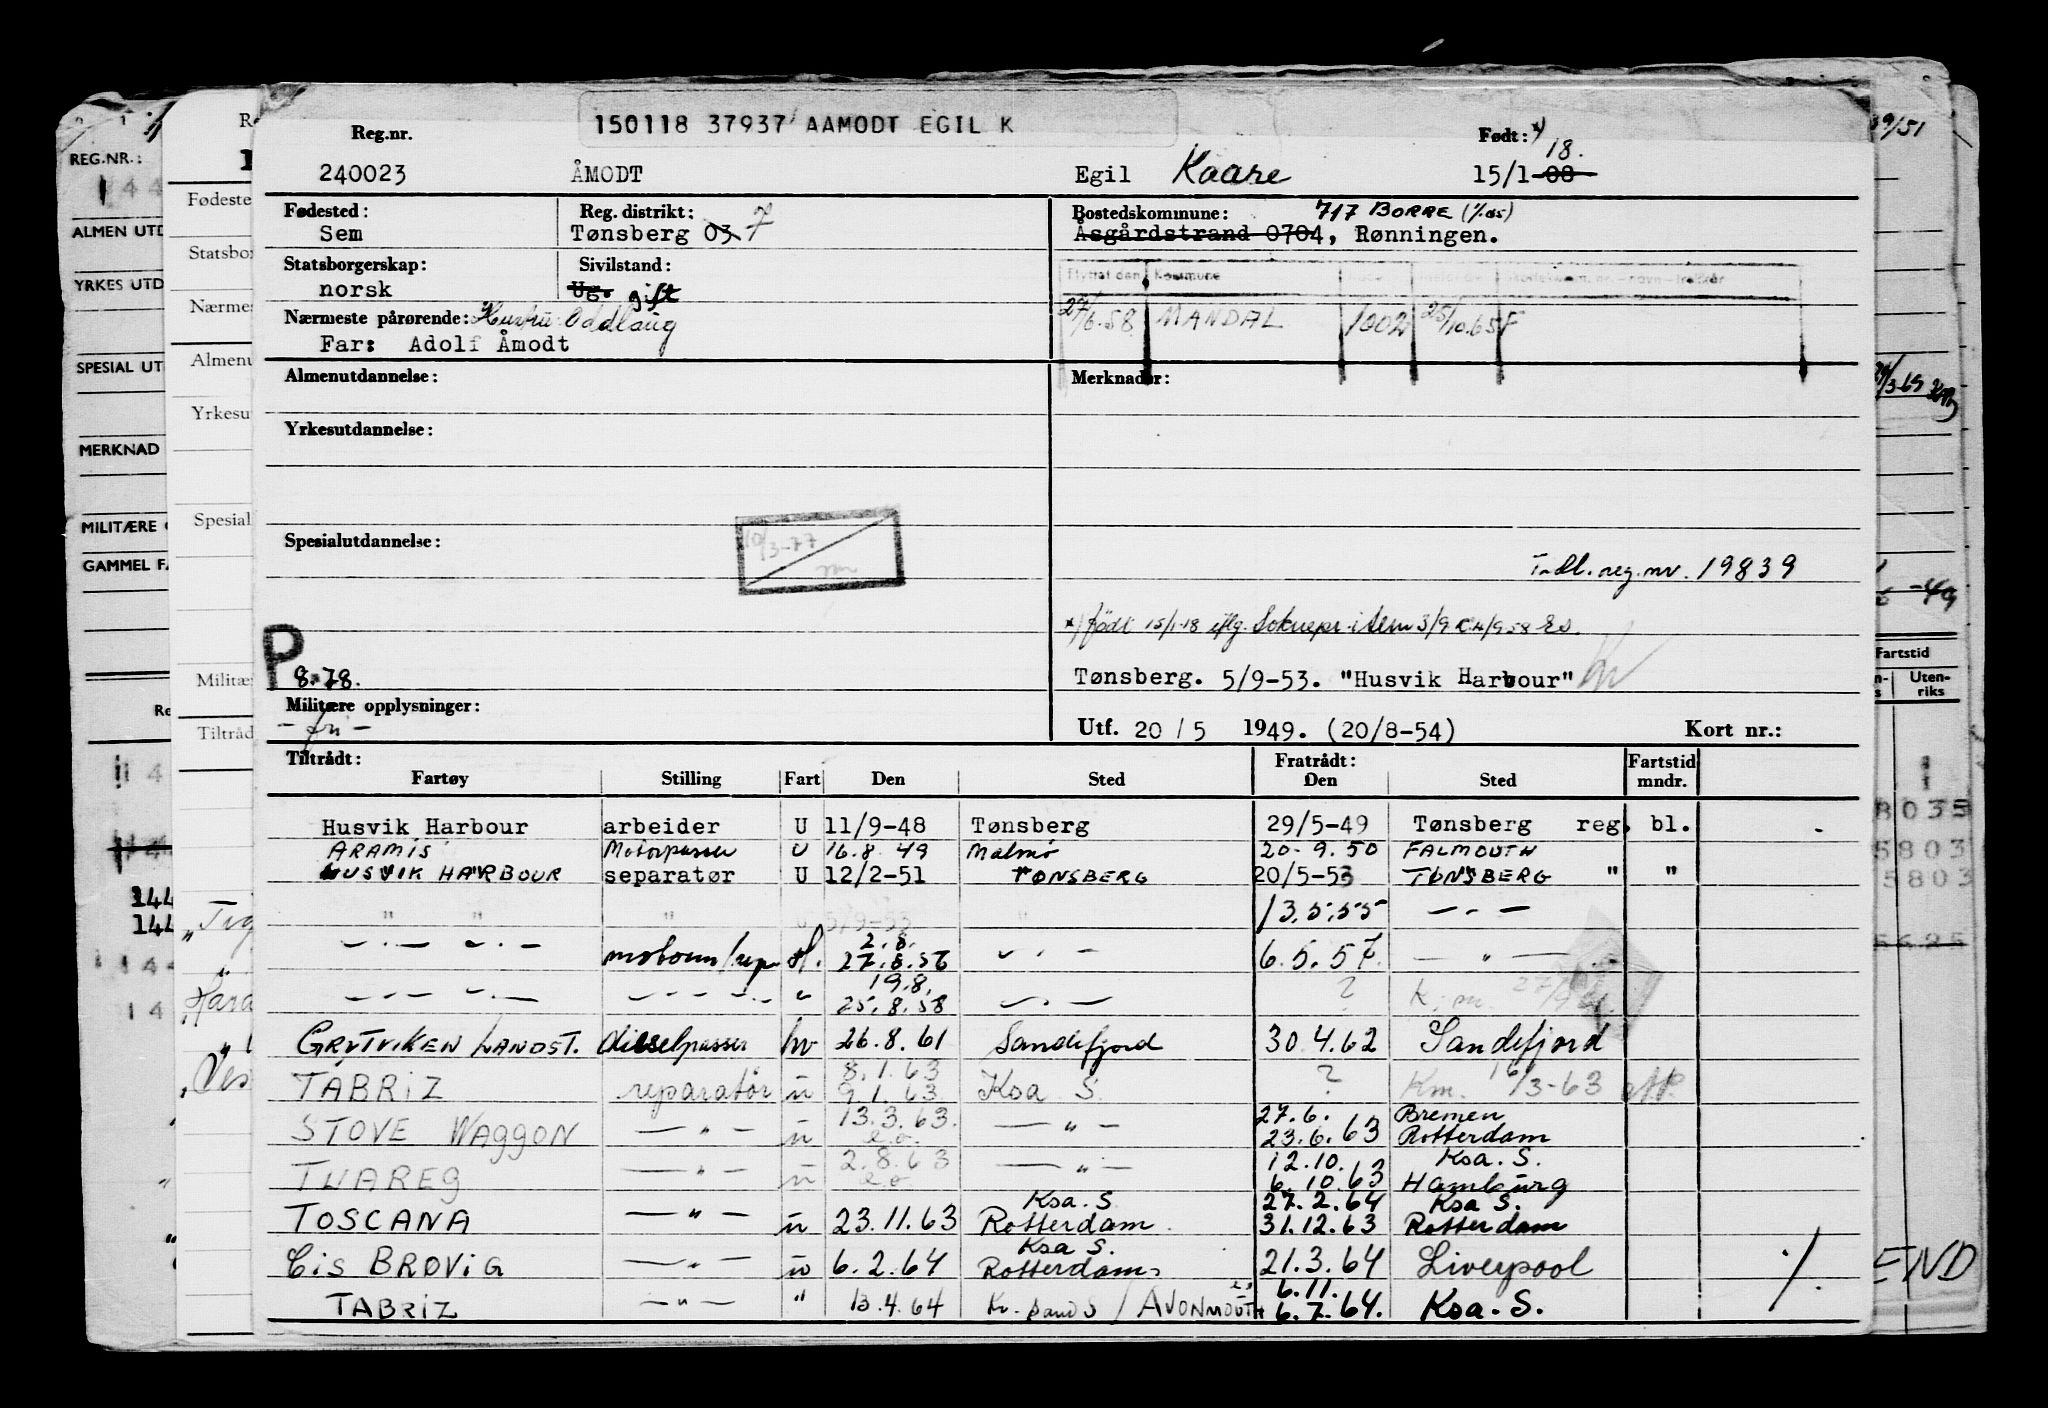 150118 37937 AAMODT EGIL K
Reg.nr. Født: *)
18.
240023 ÅMODT Egil Kaare 15/1-08
Fødested: Reg. distrikt: 7 Bostedskommune: 717 BORRE (1/1-65)
Sem Tønsberg 03 Åsgårdstrand 0704, Rønningen.
Statsborgerskap: Sivilstand:
norsk Ug. gift
Flyttet den Kommune
27/6.58 MANDAL 1002 25/10.65 F
Nærmeste pårørende: Hustru: Oddlaug
Far: Adolf Åmodt
Almenutdannelse: Merknader:
Yrkesutdannelse:
Spesialutdannelse:
10/3-77
Tidl. reg. nr. 19839
*) født 15/1-18 iflg. Sokнepr. i Sem 3/9
P
8-78.
Tønsberg. 5/9-53. "Husvik Harbour"
Militære opplysninger:
- fri -
Utf. 20 / 5 1949. (20/8-54) Kort nr.:
Tiltrådt: Fratrådt: Fartstid
Fartøy Stilling Fart Den Sted Den Sted mndr.
Husvik Harbour arbeider U 11/9-48 Tønsberg 29/5-49 Tønsberg reg. bl.
ARAMIS Motorpasser U 16.8.49 Malmø 20.9.50 FALMOUTH
HUSVIK HARBOUR separatør U 12/2-51 TØNSBERG 20/5-53 TØNSBERG " "
" " " U 5/9-53 " 13.5.55 — " —
— " — " — motorm/rep H. 2.8. 27.8.56 — " — 6.5.57. — " —
— " — " — — " — " 19.8. 25.8.58 — " — ?
GRYTVIKEN LANDST. dieselpasser hv 26.8.61 Sandefjord 30.4.62 Sandefjord
TABRIZ reparatør u 8.1.63 9.1.63 Ksa S. ? Km. 16/3-63
STOVE WAGGON — " — u 13.3.63. e.o. — " — 27.6. 23.6.63 Bremen Rotterdam
TUAREG — " — u 2.8.63 e.o. — " — 12.10. 6.10.63 Ksa. S. Hamburg
TOSCANA — " — u 23.11.63 Ksa. S Rotterdam. 27.2.64 31.12.63 Ksa S. Rotterdam
Cis BROVIG — " — u 6.2.64 Ksa S. Rotterdam 21.3.64 Liverpool
TABRIZ — " — " 13.4.64 Kr. sand S / AVONMOUTH 6.11. 6.7.64. Ksa. S.
./.
REG.NR.:
144
ALMEN UTD
YRKES UTD
SPESIAL UT
MERKNAD
MILITÆRE
GAMMEL FA
Fødeste
Statsbor
Nærmes
Almenu
Yrkesu
Spesial
Militæ
Tiltråd
Fartstid
Uten-
riks
8035
5803
5803
5625
END